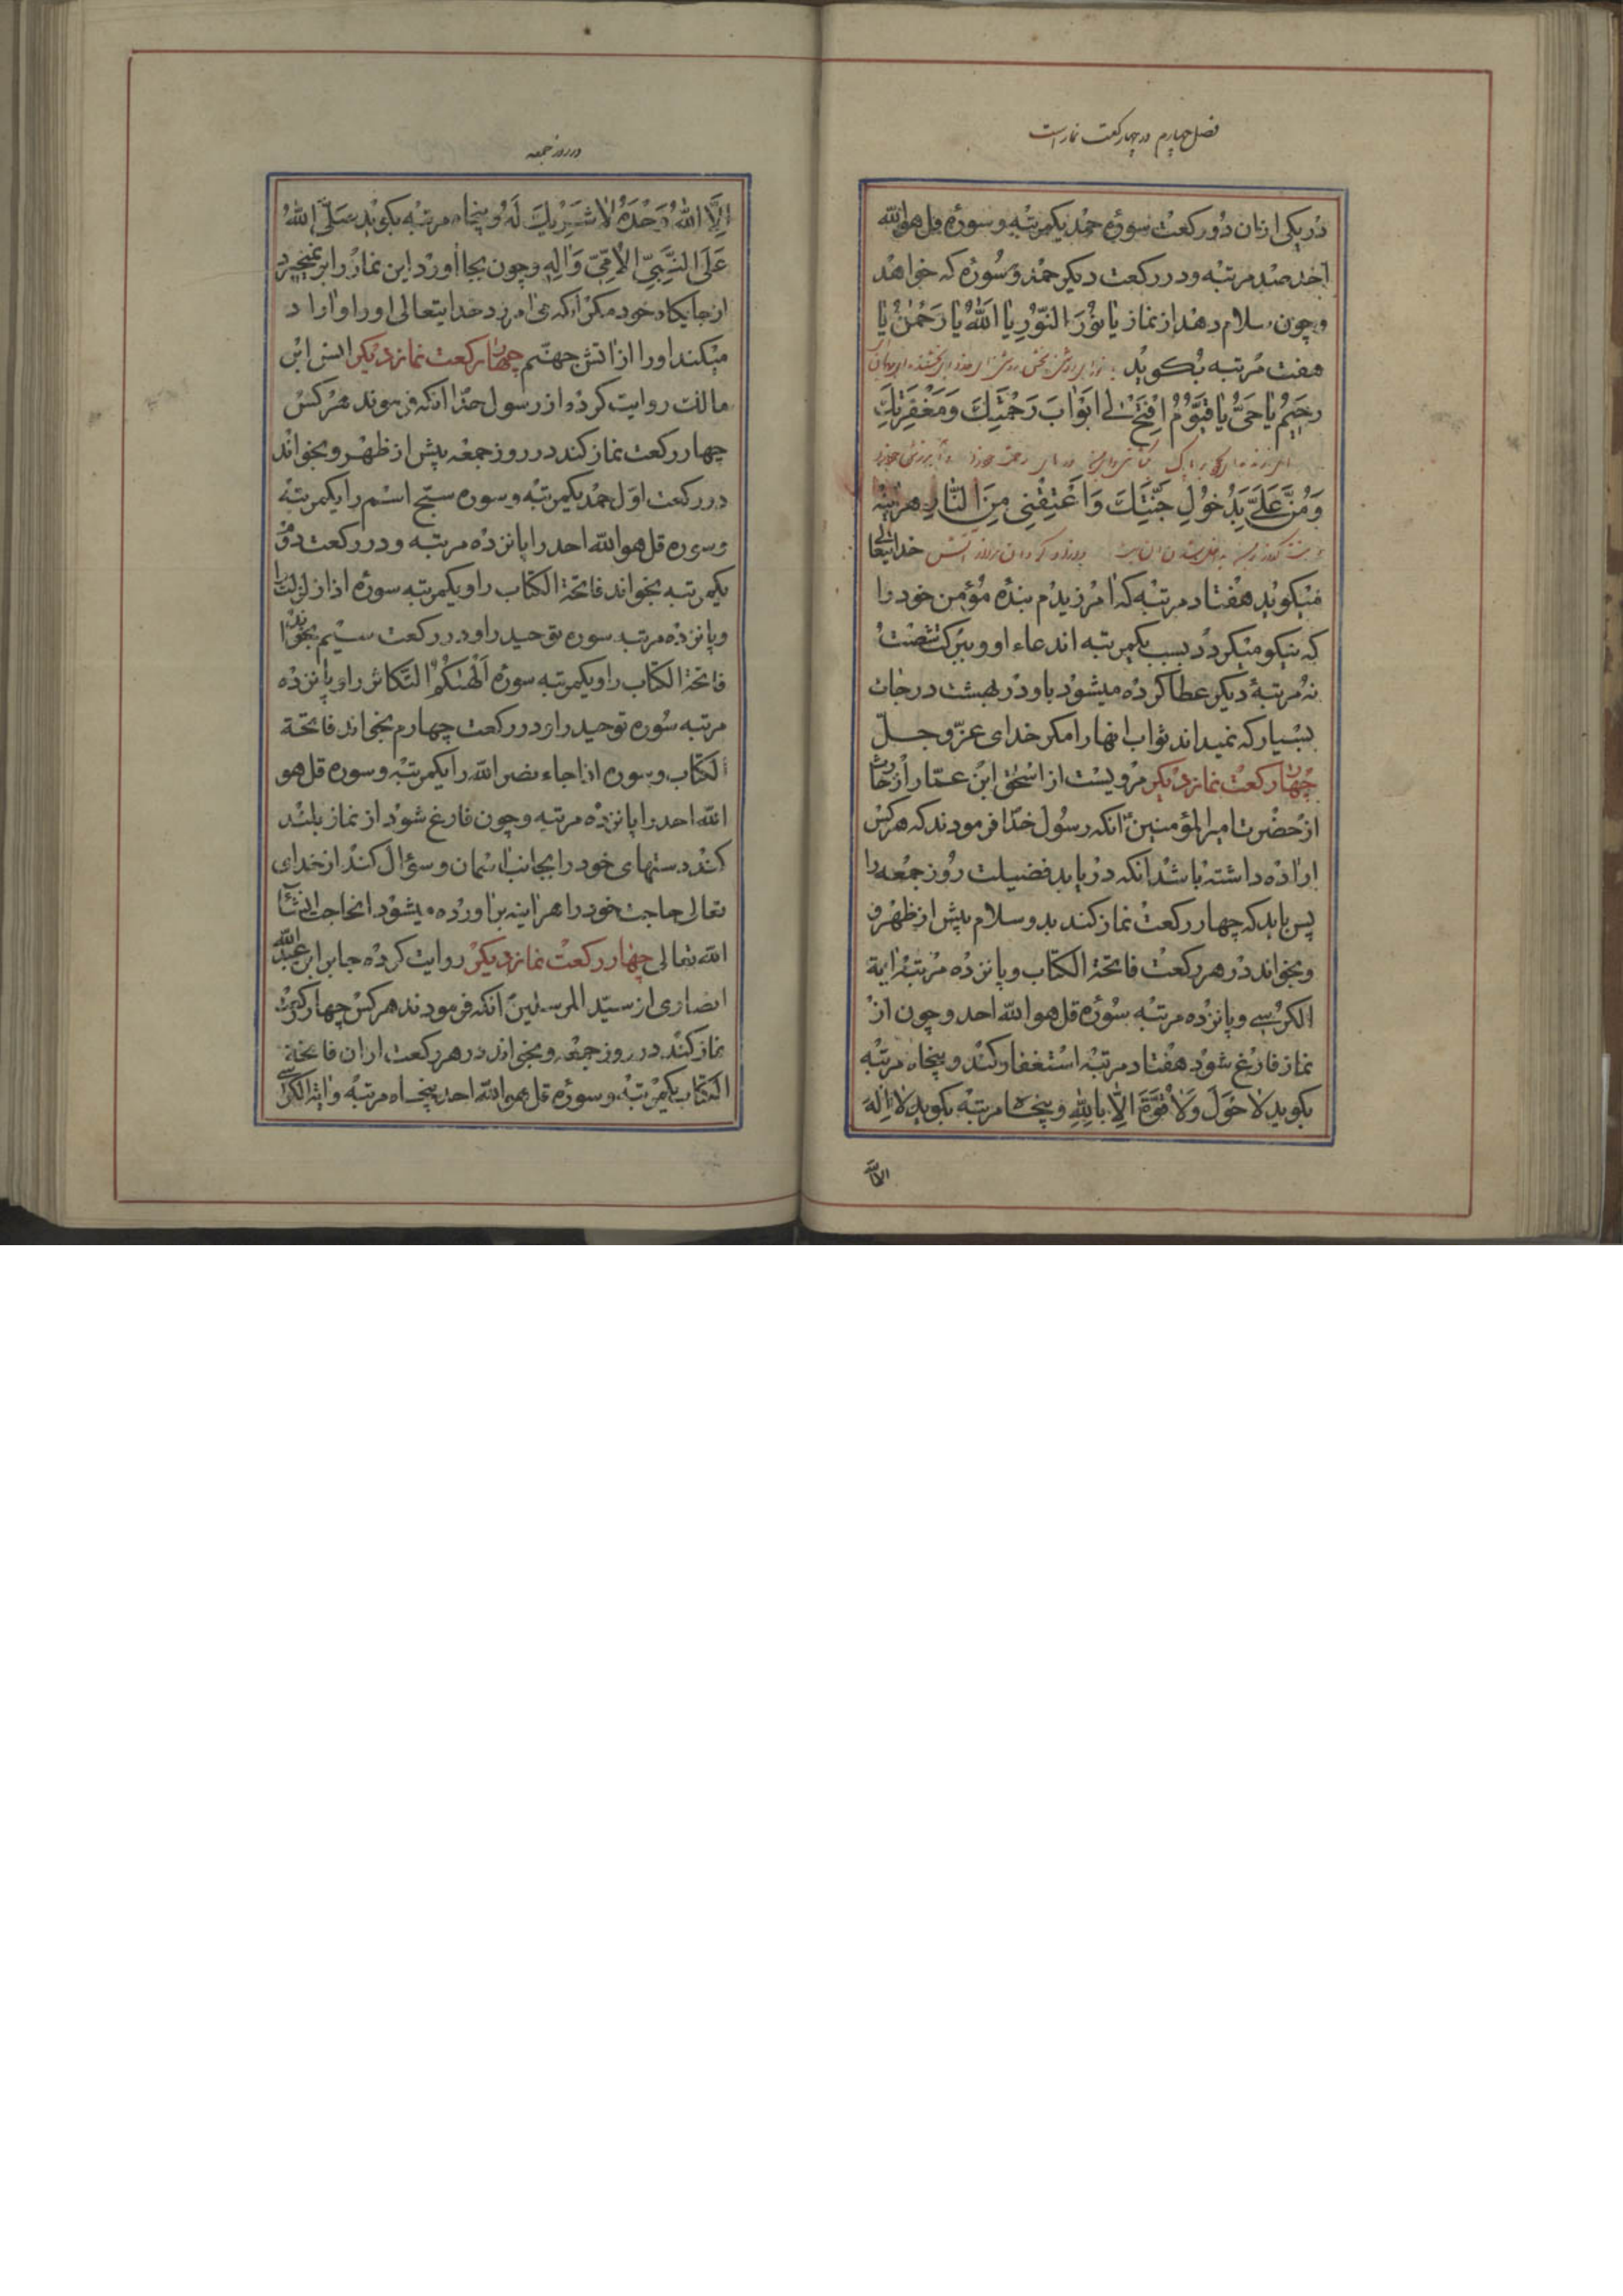 فصل چهارم در چهار رکعت نماز است
در یکی ازان دو رکعت سوره حمد یکمرتبه و سوره قل هو الله
احد صد مرتبه و در رکعت دیکر حمد و سوره که خواهد
و چون سلام دهد از نماز یا نُورَ النُّورِ یا اَللهُ یا رَحْمنُ یا
هفت مرتبه بکوید
رَحیمُ یا حَیُّ یا قَیُّومُ اِفْتَحْ لی اَبْوابَ رَحْمَتِكَ وَمَغْفِرَتِكَ
وَمُنَّ عَلَیَّ بِدُخُولِ جَنَّتِكَ وَاَعْتِقْنی مِنَ النّارِ هر مرتبه
خدایتعالی
میکوید هفتاد مرتبه که امرزیدم بنده مؤمن خود را
که نیکو میکردد بسبب یکمرتبه ان دعاء او و ببرکت شصت
نه مرتبه دیکر عطا کرده میشود باو در بهشت درجات
بسیار که نمیداند ثواب انها را مکر خدای عزّ و جلّ
چهار رکعت نماز دیکر مرویست از اسحق ابن عمّار از حارث
از حضرت امیر المؤمنین انکه رسول خدا فرمودند که هر کس
اراده داشته باشد انکه دریابد فضیلت روز جمعه را
پس باید که چهار رکعت نماز کند بدو سلام پیش از ظهر
و بخواند در هر رکعت فاتحة الکتاب و پانزده مرتبه ایة
الکرسی و پانزده مرتبه سوره قل هو الله احد و چون از
نماز فارغ شود هفتاد مرتبه استغفار کند و پنجاه مرتبه
بکوید لا حَوْلَ وَلا قُوَّةَ اِلّا بِاللهِ و پنجاه مرتبه بکوید لا اِلهَ
الا الله
در روز جمعه
اِلَّا اللهُ وَحْدَهُ لا شَریكَ لَهُ و پنجاه مرتبه بکوید صَلَّی اللهُ
عَلَی النَّبِیِّ الْاُمِّیِّ وَآلِهِ و چون بجا اورد این نماز را بر نمیخیزد
از جایکاه خود مکر انکه می امرزد خدایتعالی او را و ازاد
میکند او را از اتش جهنّم چهار رکعت نماز دیکر انس ابن
مالک روایت کرده از رسول خدا انکه فرمودند هر کس
چهار رکعت نماز کند در روز جمعه پیش از ظهر و بخواند
در رکعت اول حمد یکمرتبه و سوره سبّح اسم را یکمرتبه
و سوره قل هو الله احد را پانزده مرتبه و در رکعت دوّم
یکمرتبه بخواند فاتحة الکتاب را و یکمرتبه سوره اذا زلزلت را
و پانزده مرتبه سوره توحید را و در رکعت سیم بخواند
فاتحة الکتاب را و یکمرتبه سوره اَلْهٰیکُمُ التَّکاثر را و پانزده
مرتبه سوره توحید را و در رکعت چهارم بخواند فاتحة
الکتاب و سوره اذا جاء نصر الله را یکمرتبه و سوره قل هو
الله احد را پانزده مرتبه و چون فارغ شود از نماز بلند
کند دستهای خود را بجانب اسمان و سئوال کند از خدای
تعالی حاجت خود را هراینه براورده میشود انحاجت انشآء
الله تعالی چهار رکعت نماز دیکر روایت کرده جابر ابن عبد الله
انصاری از سیّد المرسلین انکه فرمودند هر کس چهار رکعت
نماز کند در روز جمعه و بخواند در هر رکعت ازان فاتحة
الکتاب یکمرتبه و سوره قل هو الله احد پنجاه مرتبه و ایة الکرسی